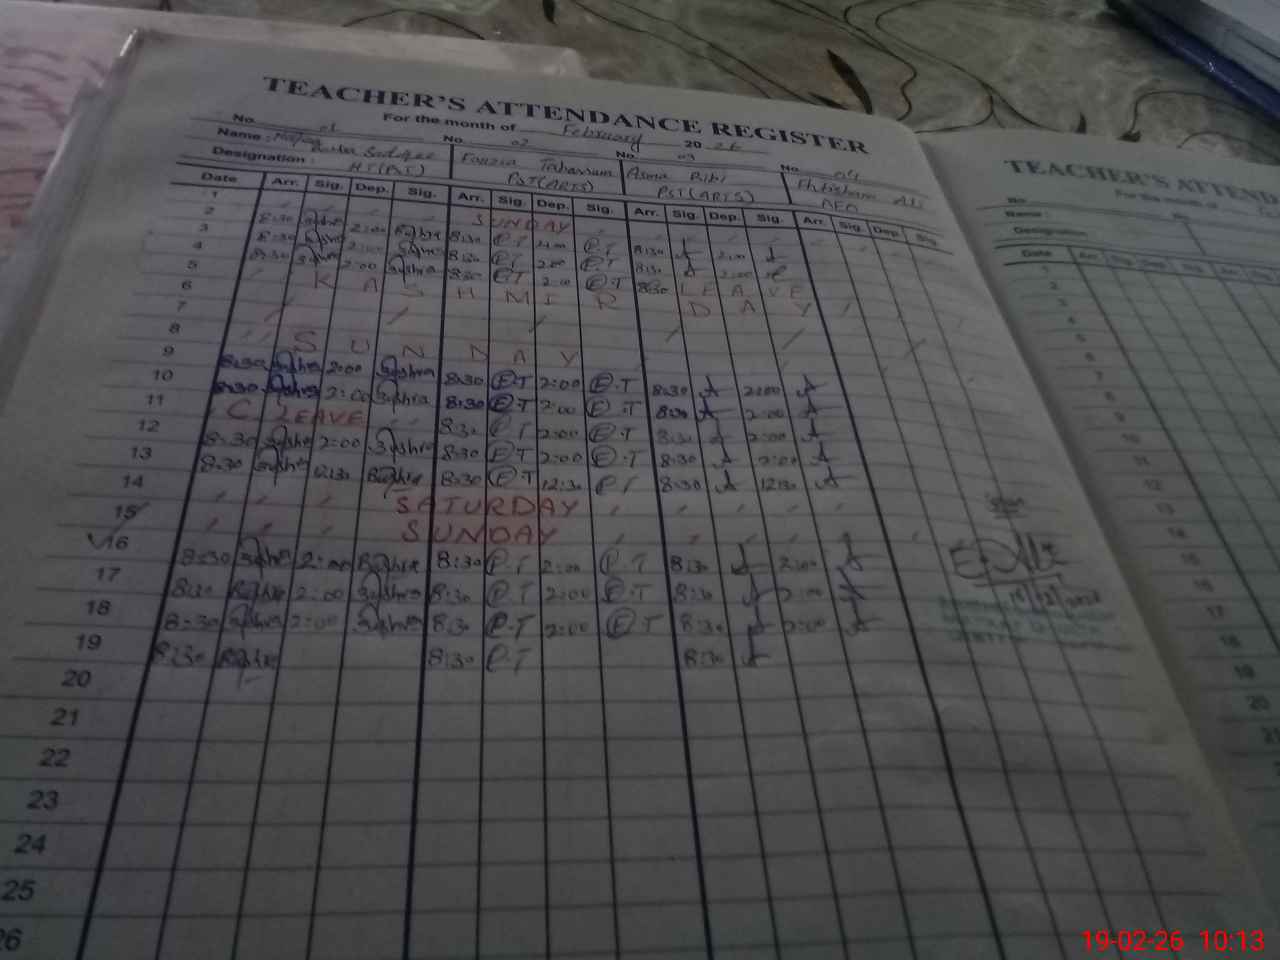 TEACHER'S ATTENDANCE REGISTER
For the month of February 20 26
No. 01 No. 02 No. 03 No. 04
Name : Bushra Fouzia Tabassum Asma Bibi Ehtisham Ali
Designation : HT(PST) PST(ARTS) PST(ARTS) AEO
Date Arr. Sig. Dep. Sig. Arr. Sig. Dep. Sig. Arr. Sig. Dep. Sig. Arr. Sig. Dep. Sig.
1 SUNDAY
2 8:30 Bushra 2:00 Bushra 8:30 F.T 2:00 F.T 8:30 A 2:00 A
3 8:30 Bushra 2:00 Bushra 8:30 F.T 2:00 F.T 8:30 A 2:00
4 8:30 Bushra 2:00 Bushra 8:30 F.T 2:00 F.T 8:30 LEAVE
5 KASHMIR DAY
6
7
8 SUNDAY
9 8:30 Bushra 2:00 Bushra 8:30 F.T 2:00 F.T 8:30 A 2:00 A
10 8:30 Bushra 2:00 Bushra 8:30 F.T 2:00 F.T 8:30 A 2:00 A
11 C. LEAVE 8:30 F.T 2:00 F.T 8:30 A 2:00 A
12 8:30 Bushra 2:00 Bushra 8:30 F.T 2:00 F.T 8:30 A 2:00 A
13 8:30 Bushra 12:30 Bushra 8:30 F.T 12:30 F.T 8:30 A 12:30 A
14 SATURDAY
15 SUNDAY
16 8:30 Bushra 2:00 Bushra 8:30 F.T 2:00 F.T 8:30 A 2:00 A
17 8:30 Bushra 2:00 Bushra 8:30 F.T 2:00 F.T 8:30 A 2:00 A
18 8:30 Bushra 2:00 Bushra 8:30 F.T 2:00 F.T 8:30 A 2:00 A
19 8:30 Bushra 8:30 F.T 8:30 A
20
21
22
23
24
25
26
TEACHER'S ATTEND
For the month of
Name :
Designation
Date Arr.
1
2
3
4
5
6
7
8
9
10
11
12
13
14
15
16
17
18
19
20
19-02-26 10:13